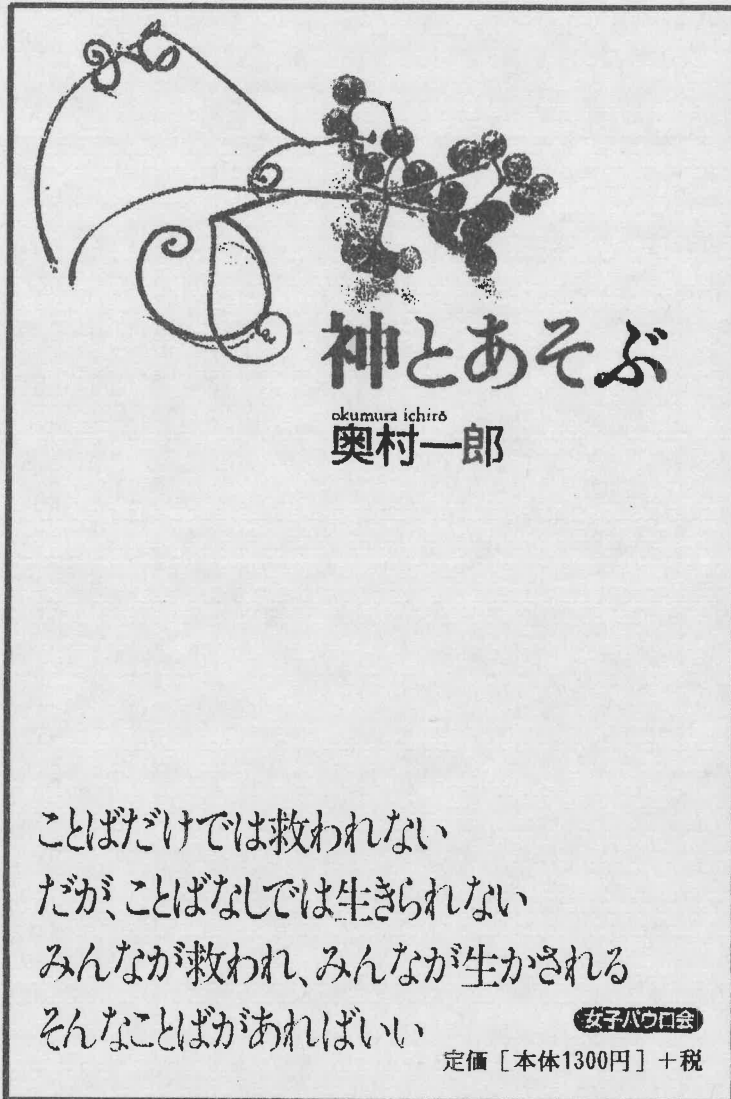 神とあそぶ
okumura ichirō
奥村一郎
ことばだけでは救われない
だが、ことばなしでは生きられない
みんなが救われ、みんなが生かされる
そんなことばがあればいい
女子パウロ会
定価［本体1300円］＋税